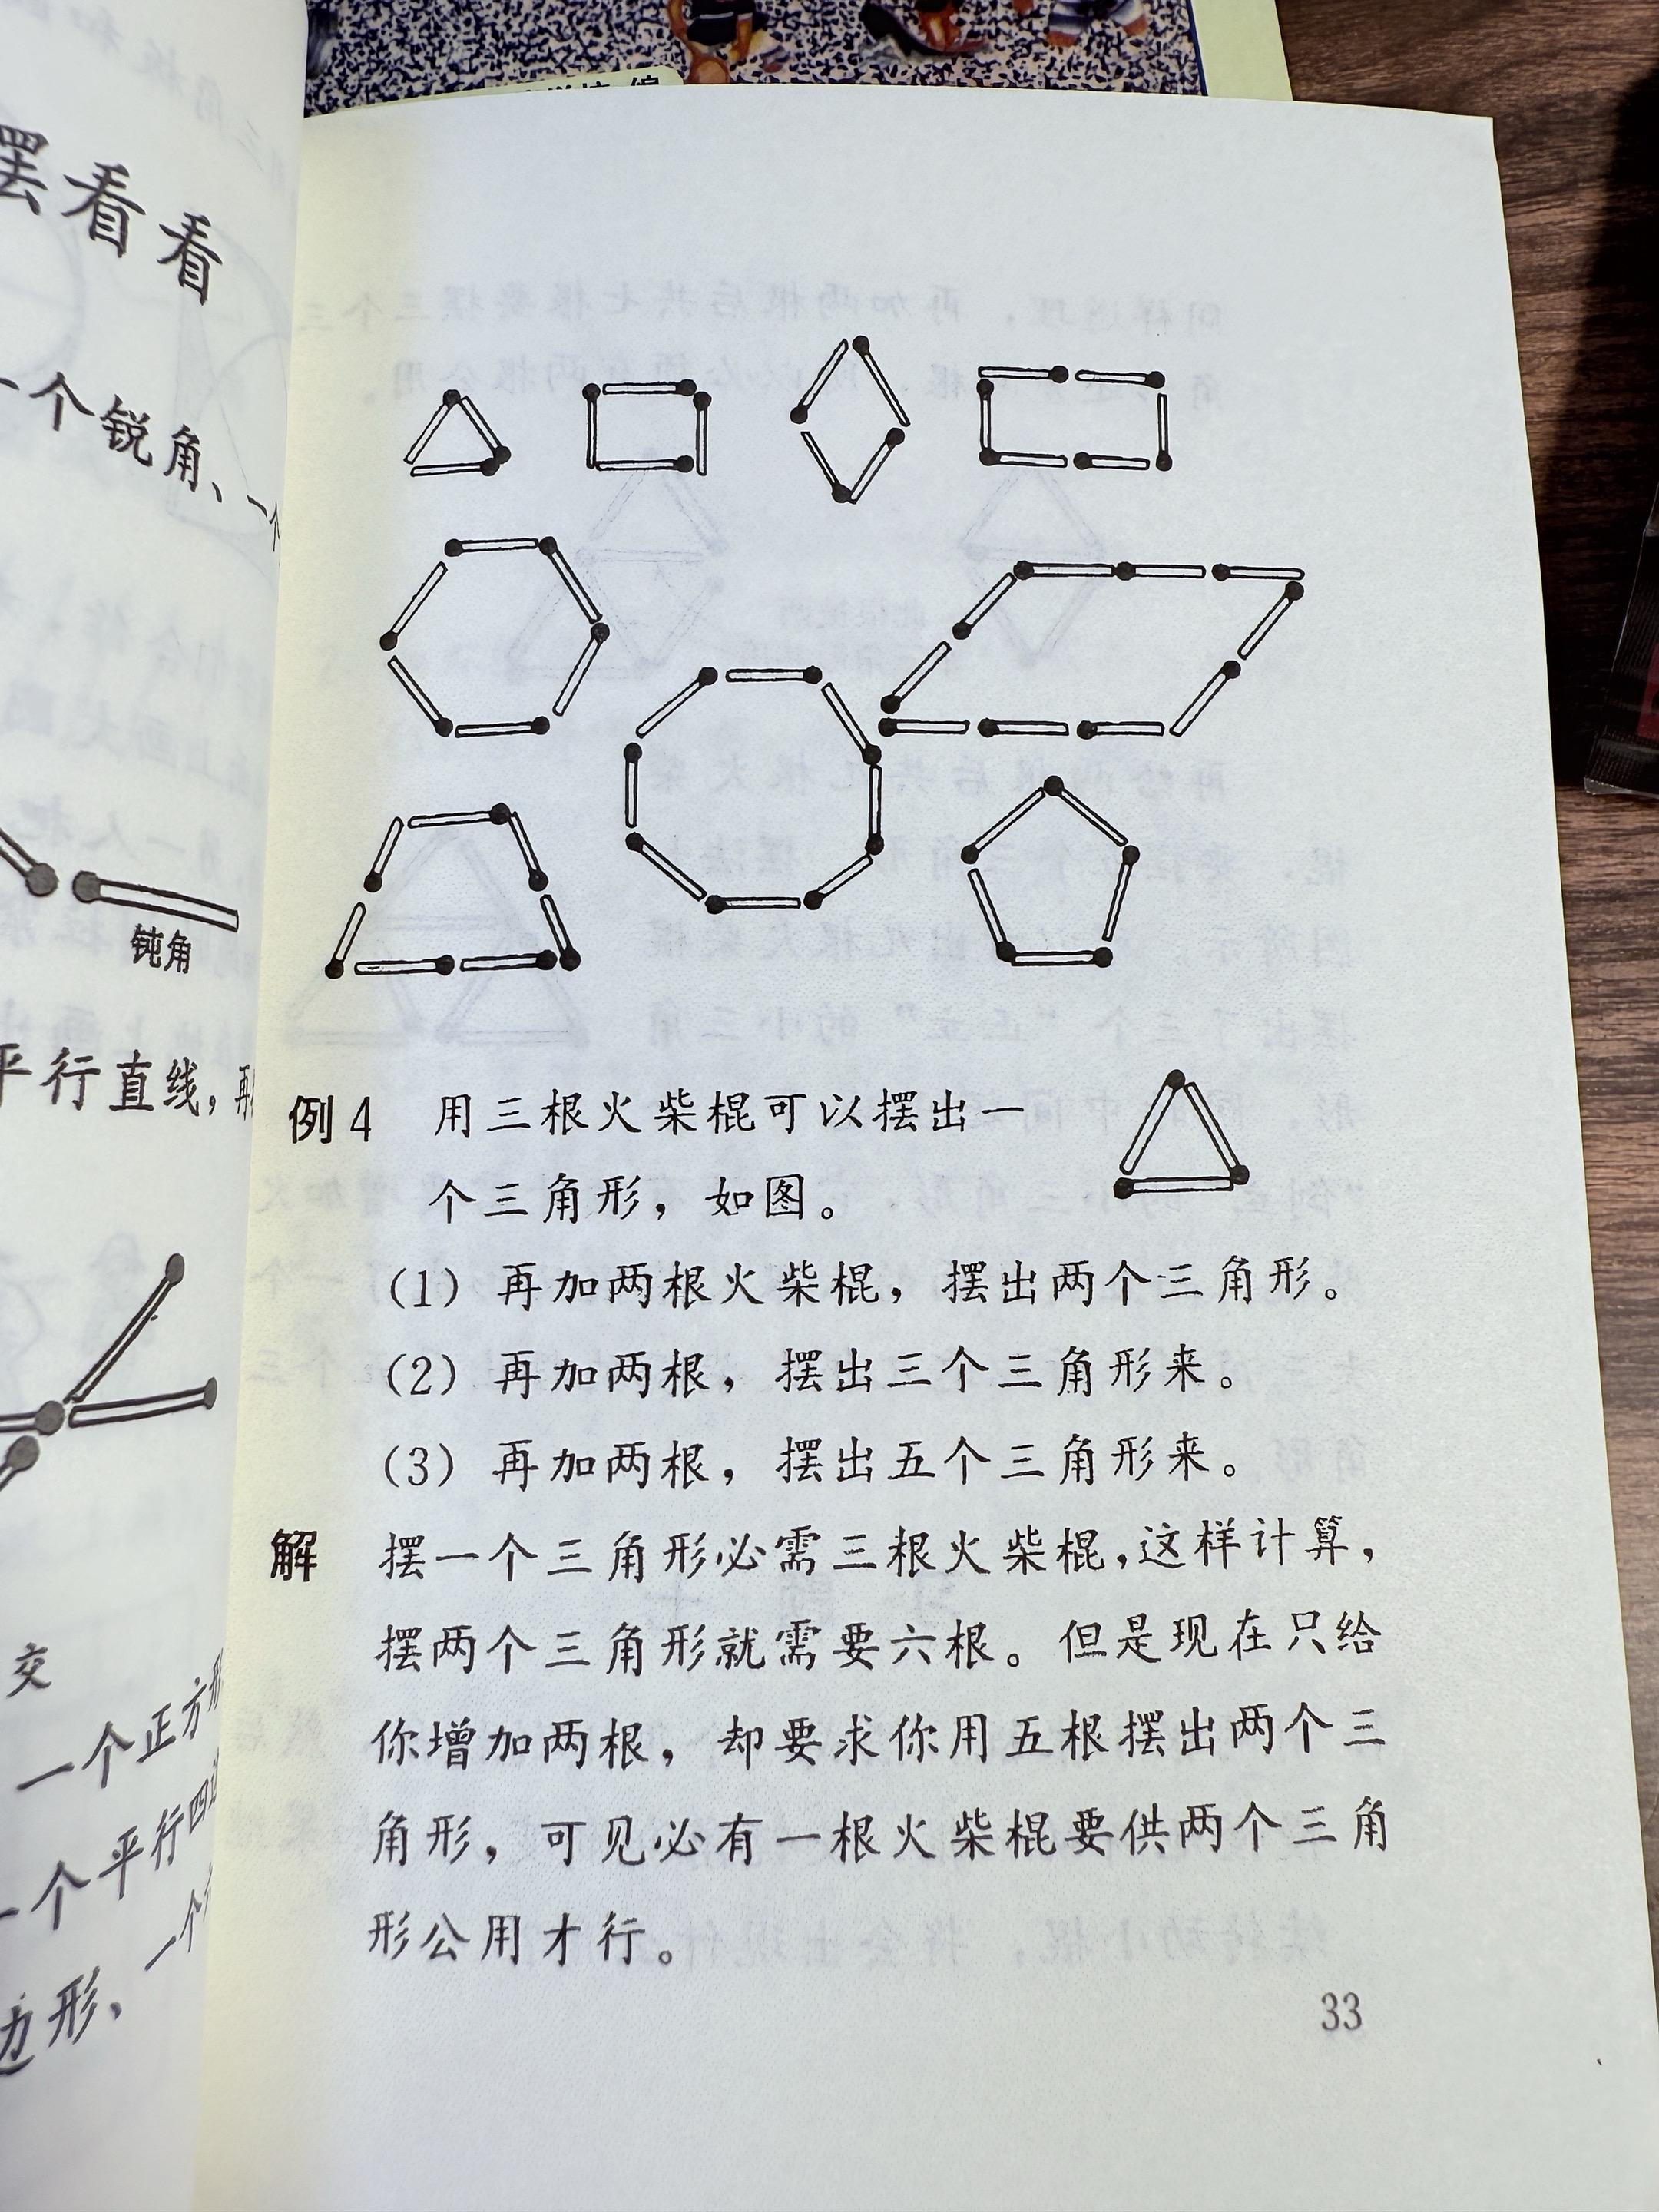 摆看看
一个锐角、一个
钝角
平行直线，再
交
一个正方形
一个平行四边
边形、一个
例4 用三根火柴棍可以摆出一
个三角形，如图。
(1) 再加两根火柴棍，摆出两个三角形。
(2) 再加两根，摆出三个三角形来。
(3) 再加两根，摆出五个三角形来。
解 摆一个三角形必需三根火柴棍，这样计算，
摆两个三角形就需要六根。但是现在只给
你增加两根，却要求你用五根摆出两个三
角形，可见必有一根火柴棍要供两个三角
形公用才行。
33